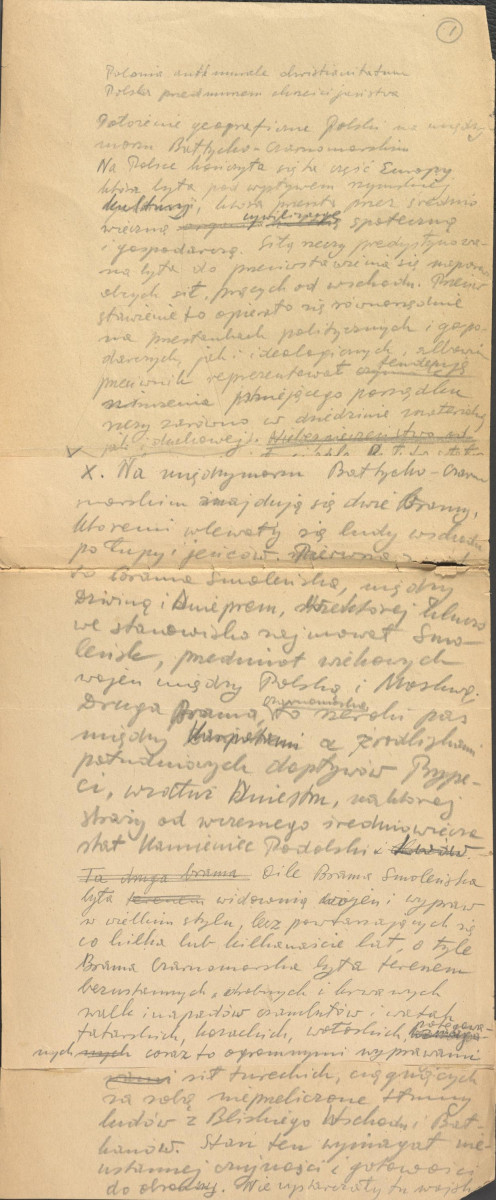 1
Polonia antemurale christianitatum
Polska przedmurzem chrześcijaństwa
Położenie geograficzne Polski na między
morzu Bałtycko-Czarnomorskim
Na Polsce kończyła się ta część Europy
która była pod wpływem rzymskiej
kultury, która przeszła przez średnio
wieczną cywilizację społeczną
i gospodarczą. Siłą rzeczy predystynowa-
na była do przeciwstawienia się naporowi
obcych sił, prących od wschodu. Przeciw
stawienie to opierało się równorzędnie
na przesłankach politycznych i gospo-
darczych, jak i ideologicznych, albowiem
przeciwnik reprezentował tendencję
zniszczenia istniejącego porządku
rzeczy zarówno w dziedzinie materialnej
jak i duchowej. Niebezpieczeństwo
X. Na międzymorzu Bałtycko-Czarno
morskim znajdują się dwie Bramy,
któremi wlewały się ludy wschodu
po łupy i jeńców. Pierwsza
to Brama Smoleńska, między
Dźwiną i Dnieprem, w której kluczo
we stanowisko zajmował Smo-
leńsk, przedmiot wiekowych
wojen między Polską i Moskwą.
Druga Brama, czarnomorska to szeroki pas
między Karpatami a źródliskami
południowych dopływów Prype-
ci, wzdłuż Dniestru, na której
straży od wczesnego średniowiecza
stał Kamieniec Podolski i Lwów.
Ta druga brama. O ile Brama Smoleńska
była terenem widownią wojen i wypraw
w wielkim stylu, lecz powtarzających się
co kilka lub kilkanaście lat, o tyle
Brama Czarnomorska była terenem
bezustannych, drobnych i krwawych
walk i napadów czambułów i watah
tatarskich, kozackich, wołoskich, potęgowa-
nych coraz to ogromnymi wyprawami
sił tureckich, ciągnących
za sobą niezliczone tłumy
ludów z Bliskiego Wschodu i Bał-
kanów. Stan ten wymagał nie-
ustannej czujności i gotowości
do obrony. Nie wystarczały tu wojska